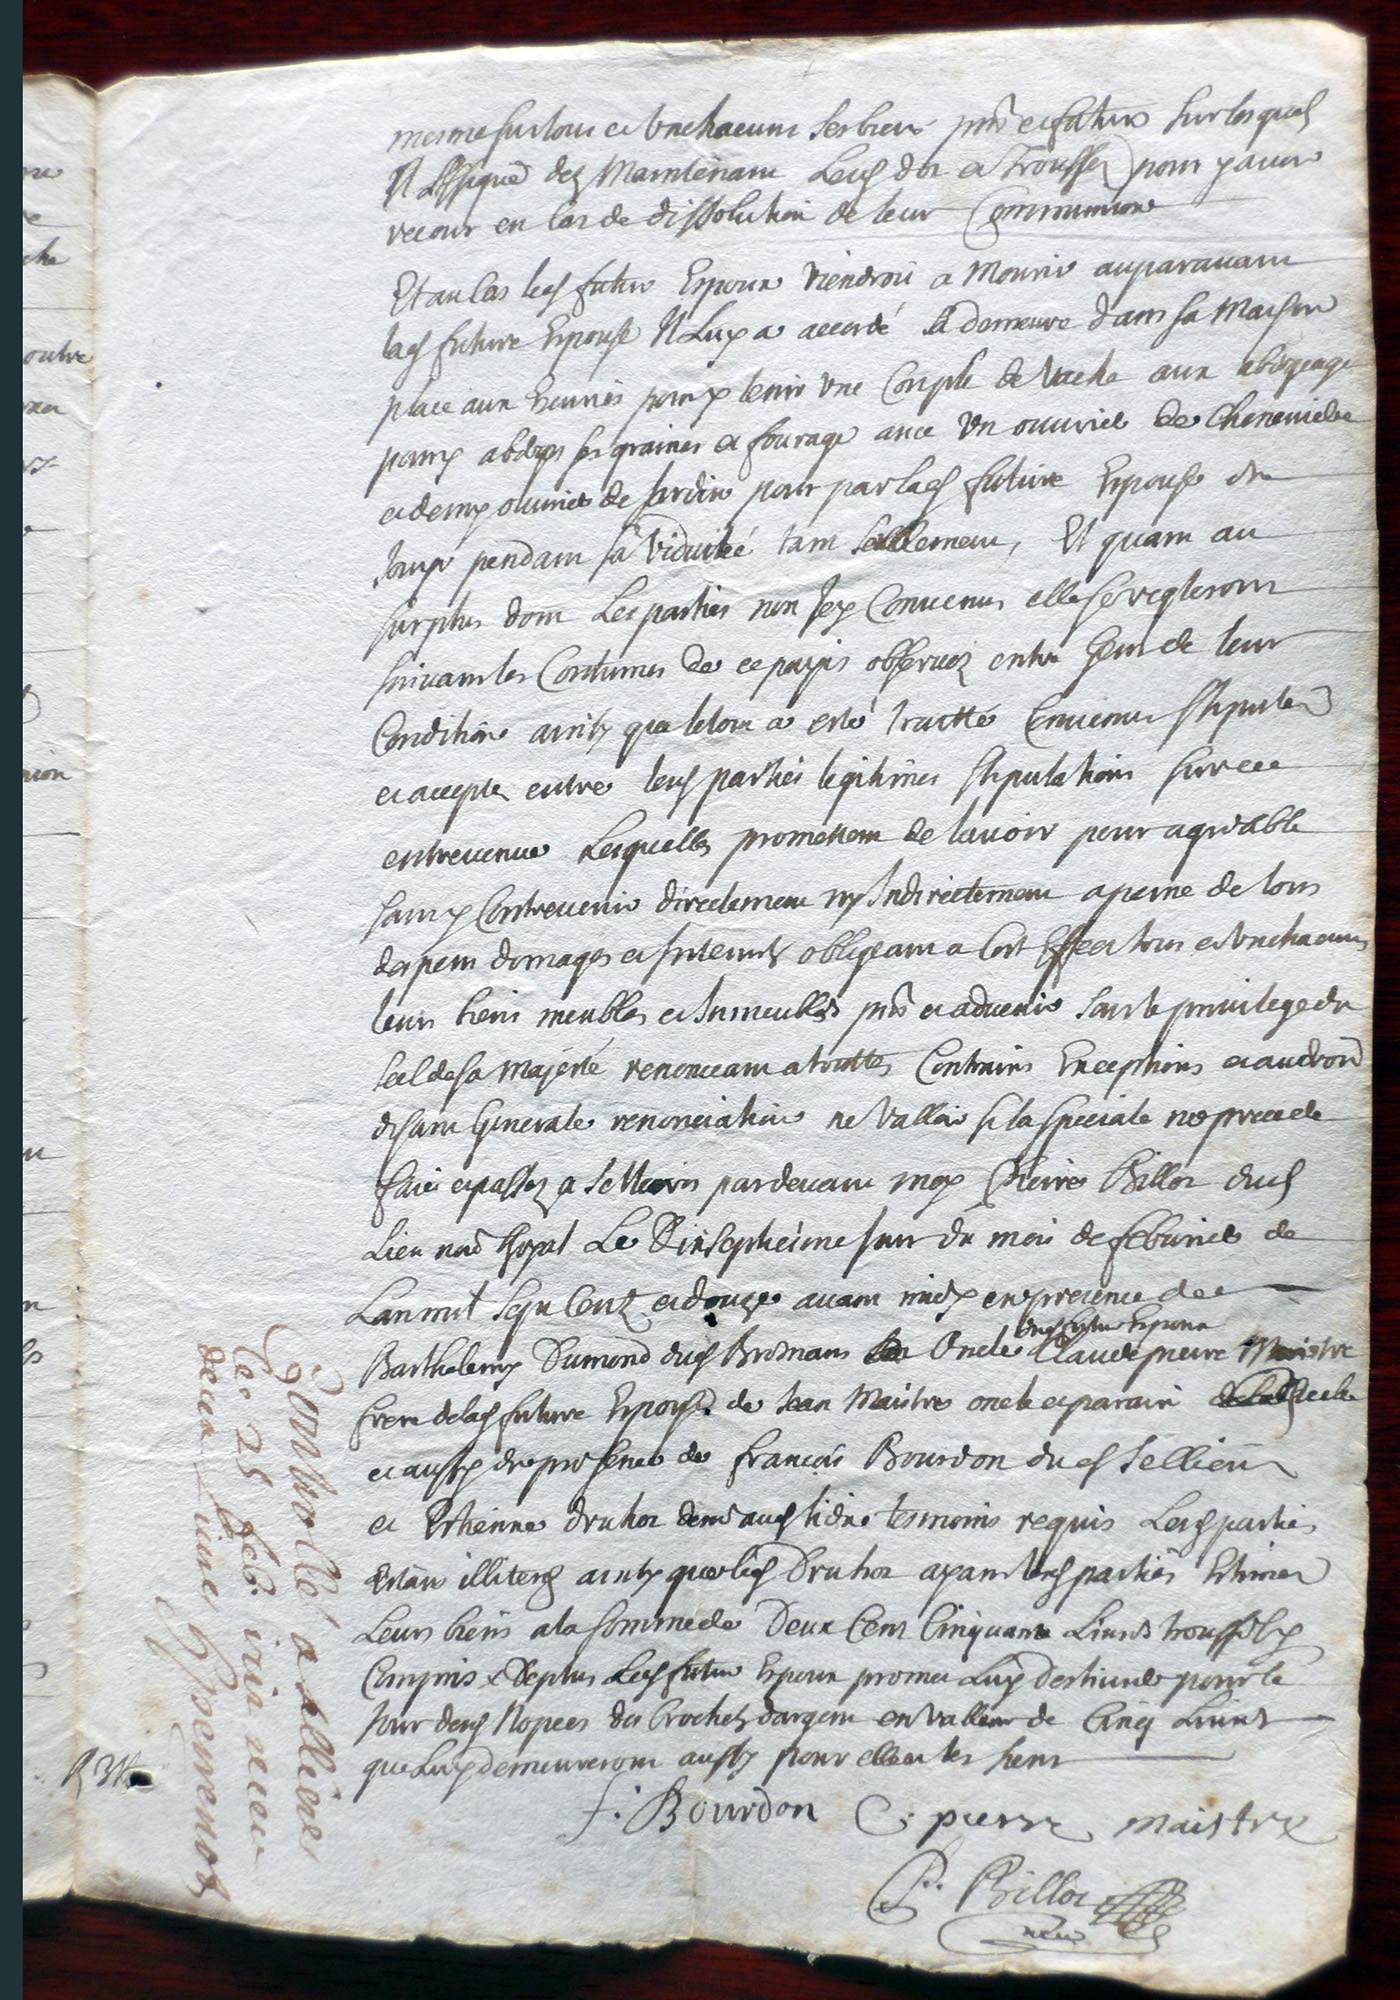 mesme sur tous et un chacuns ses biens pñs et futurs sur lesquels
Il assigne des maintenant lesd dot et troussel pour y avoir
recour en cas de dissolution de leur Communion
Et au cas led futur Espoux viendroit a mourir auparavant
lad future Espouse Il Luy a accordé sa demeure dans sa maison
place aux Ecuries pour y tenir une Couple de vache aux
pour y ses graines et fourage avec un ouvriee de Cheneviere
et demy ouvriee de Jardin pour par lad future Espouse en
Jouyr pendant sa viduité tant seullement, Et quant au
surplus dont Les parties non Icy Convenus elle se regleront
suivant les Coutumes de ce payis observez entre gens de leur
Condition ainsy que le tout a esté traitté Convenus stipulez
et accepte entre lesd parties legitimes stipulations sur ce
entrevenue Lesquelles promettent de lavoir pour agreable
sans y Contrevenir directement ny Indirectement a peine de tous
despens domages et Interests obligeant a Cest Effect tous et un chacuns
leurs biens meubles et Inmeubles pñs et advenir sous le privilege du
seel de sa majesté renonceant a toutte Contraires Exceptions et au droit
disant generale renonciation ne valloir si la speciale ne precede
fait et passez a Sellieres pardevant moy Pierre Billot dud
Lieu noẽ Royal Le Dixseptiesme Jour du mois de febvrier de
Lan mil sept Cent et douze avant midy en presence de
Barthelemy Dumond dud Brosnans Oncle dud futur Espoux Claude pierre Maistre
frere de lad future Espouse de Jean Maistre oncle et parain
et aussy de presence de françois Bourdon dud Sellieres
et Estienne druhot aud lieu tesmoins requis Lesd parties
Estans illiterez ainsy que led Druhot ayant lesd parties Estimer
Leurs biens a la somme de Deux Cent Cinquante Livres troussel y
Compris et De plus Led futur Espoux promet Luy deslivrer pour le
Jour desd Nopces des Crochets dargent en valleur de Cinq Livres
que Luy demeureront aussy pour elle et les siens
f. Bourdon C. pierre maistre
P. Billot
noẽ
Controllé a sellieres
Ce 25 feb. 1712 receu
deux livres
R 3ll